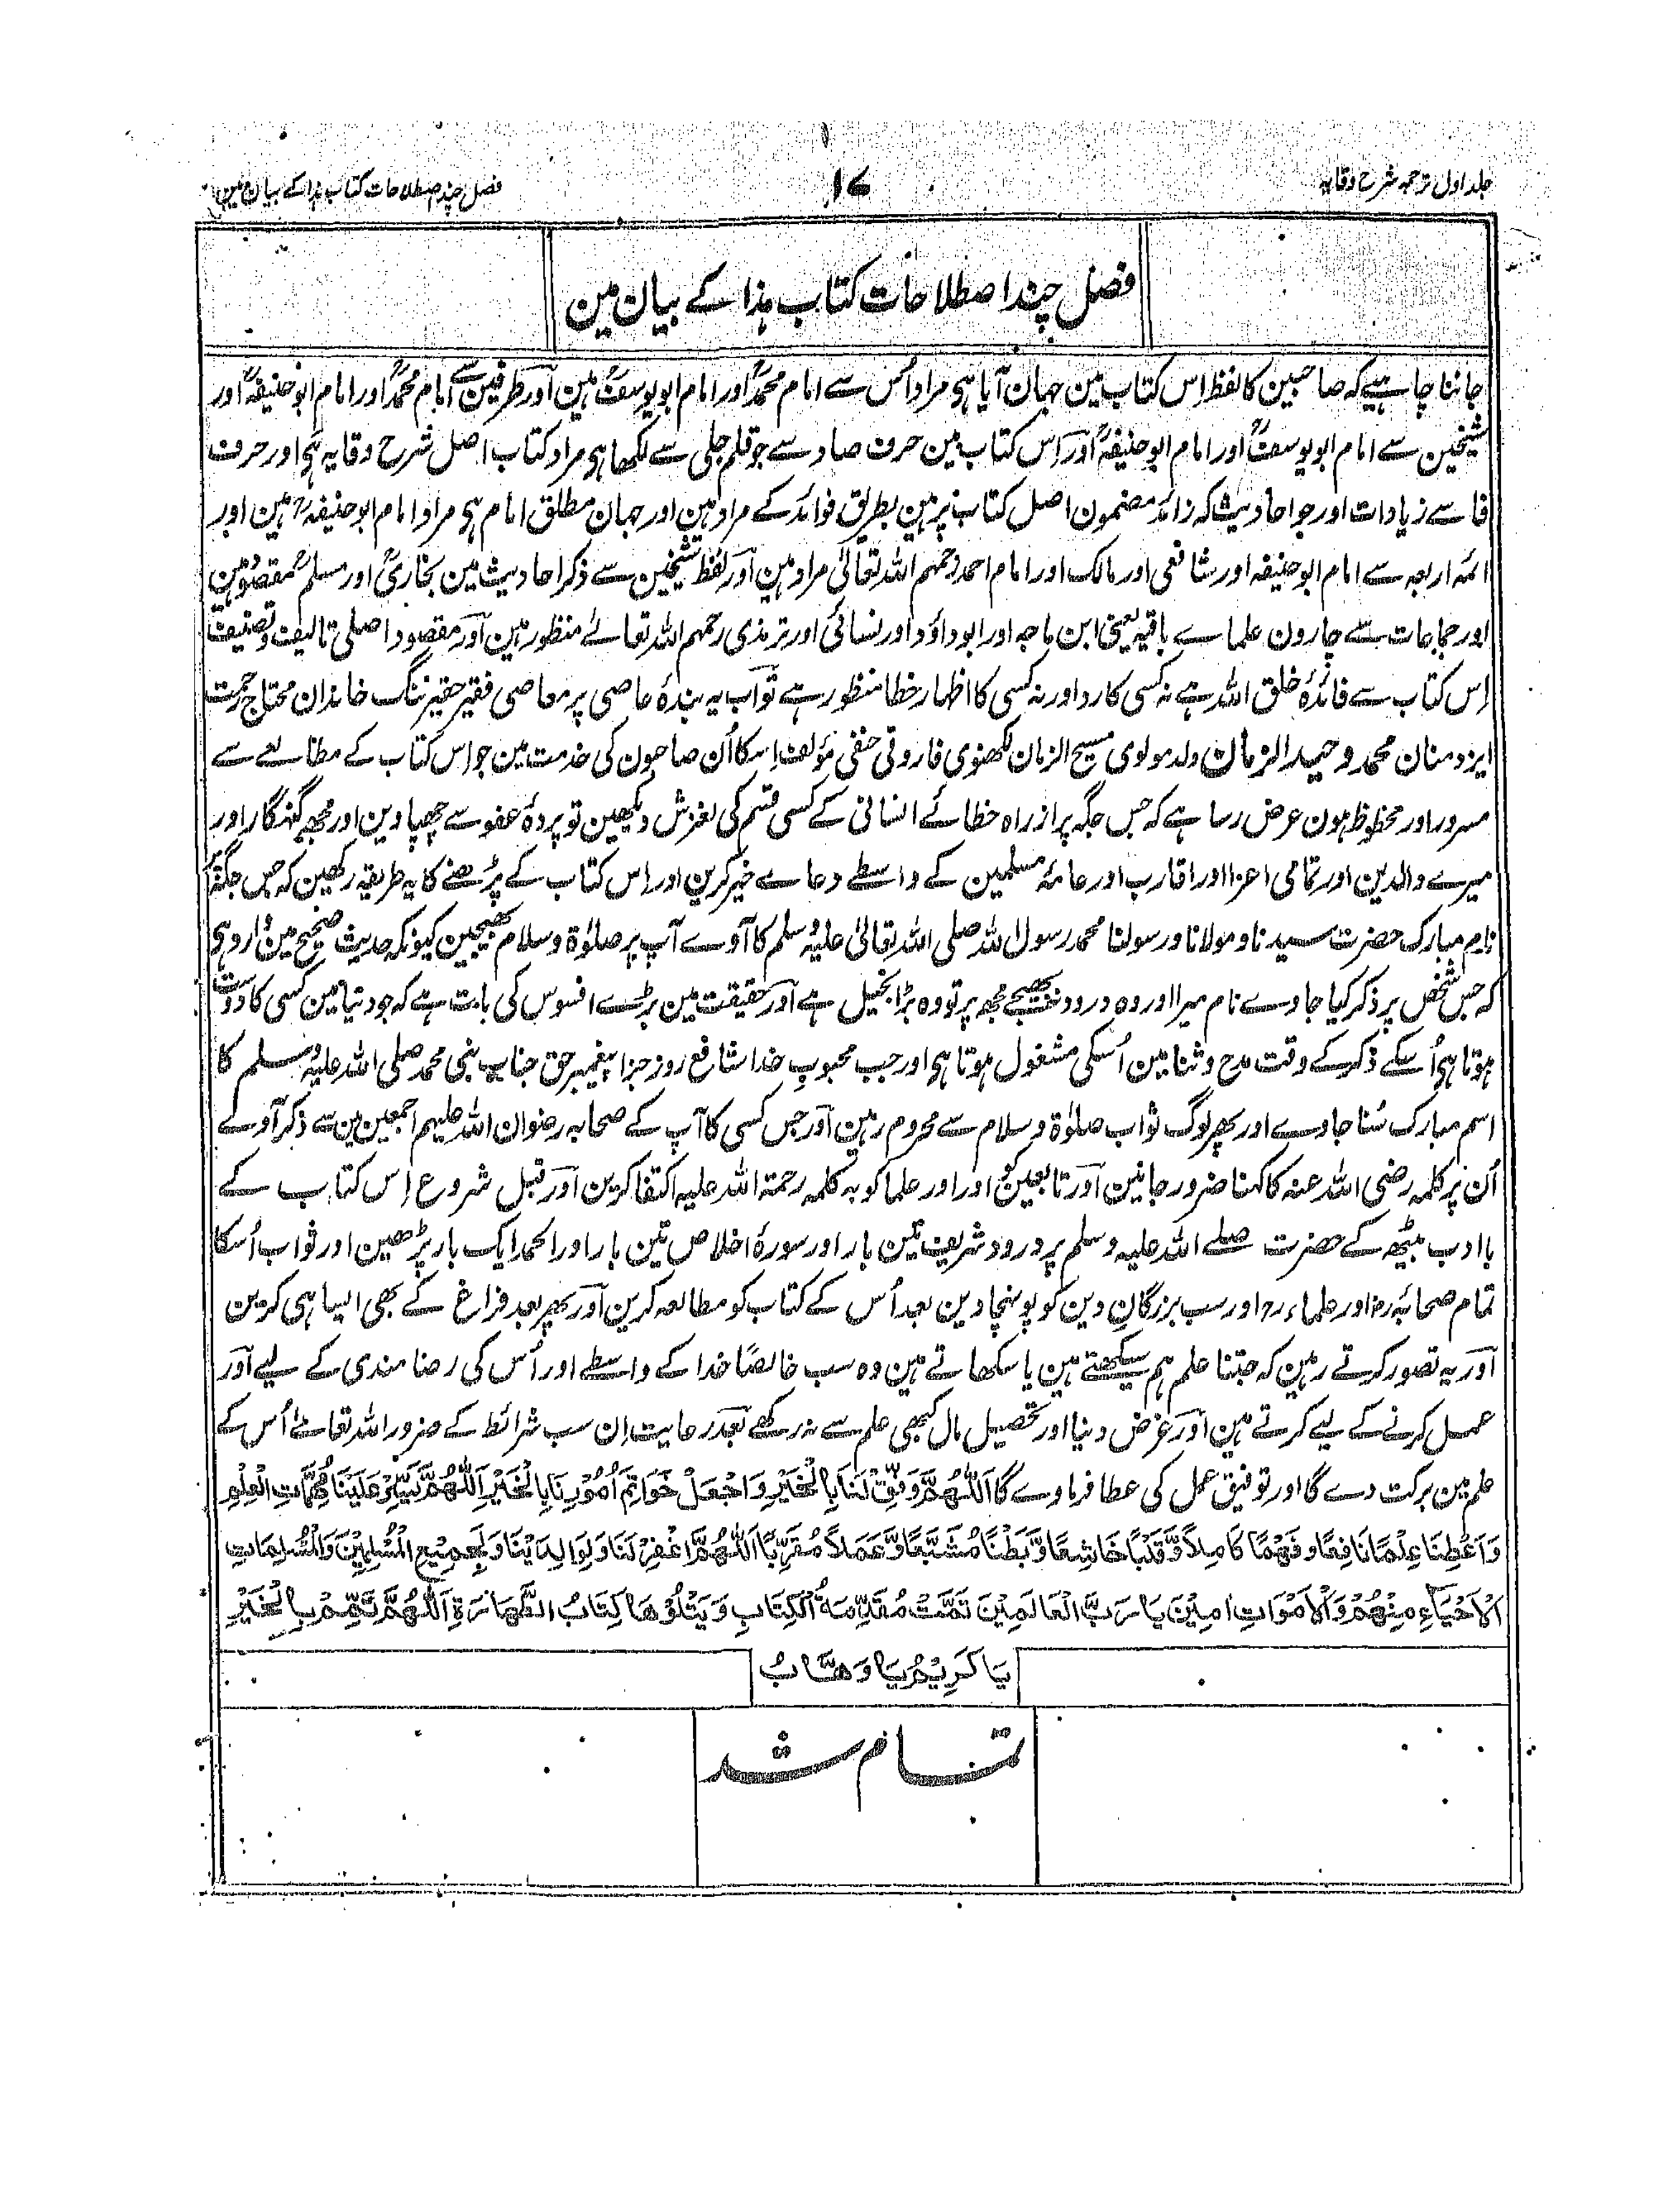 جلد اول ترجمہ شرح وقایہ
۱۷
فصل چند اصطلاحات کتاب ہذا کے بیان مین
فصل چند اصطلاحات کتاب ہذا کے بیان مین
جاننا چاہیے کہ صاحبین کا لفظ اِس کتاب مین جہان آیا ہی مراد اُس سے امام محمدؒ اور امام ابو یوسفؒ ہین اور طرفین سے امام محمدؒ اور امام ابو حنیفہؒ اور
شیخین سے امام ابو یوسفؒ اور امام ابو حنیفہؒ اور اِس کتاب مین حرف صاد سے جو قلم جلی سے لکھا ہی مراد کتاب اصل شرح وقایہ ہی اور حرف
فا سے زیادات اور جو احادیث کہ زائد مضمون اصل کتاب پر ہین بطریق فوائد کے مراد ہین اور جہان مطلق امام ہی مراد امام ابو حنیفہؒ ہین اور
ائمہ اربعہ سے امام ابو حنیفہ اور شافعی اور مالک اور امام احمد رحمہم اللہ تعالیٰ مراد ہین اور لفظ شیخین سے ذکر احادیث مین بخاریؒ اور مسلمؒ مقصود ہین
اور جماعات سے چارون علماے باقیہ یعنی ابن ماجہ اور ابو داؤد اور نسائی اور ترمذی رحمہم اللہ تعالےٰ منظور ہین اور مقصود اصلی تالیف و تصنیف
اِس کتاب سے فائدۂ خلق اللہ ہے نہ کسی کا رد اور نہ کسی کا اظہار خطا منظور ہے تو اب یہ بندۂ عاصی پر معاصی فقیر حقیر ننگ خاندان محتاج رحمت
ایزد منان محمد وحید الزمان ولد مولوی مسیح الزمان لکھنوی فاروقی حنفی مؤلف اِسکا اُن صاحبون کی خدمت مین جو اِس کتاب کے مطالعے سے
مسرور اور محظوظ ہون عرض رسا ہے کہ جس جگہ پر از راہ خطاے انسانی کے کسی قسم کی لغزش دیکھین تو پردۂ عفو سے چھپا دین اور مجھ گنہگار اور
میرے والدین اور تمامی اعزا اور اقارب اور عامۂ مسلمین کے واسطے دعاے خیر کرین اور اس کتاب کے پڑھنے کا یہ طریقہ رکھین کہ جس جگہ
نام مبارک حضرت سیدنا و مولانا و رسولنا محمد رسول اللہ صلی اللہ تعالیٰ علیہ وسلم کا آوے آپ پر صلوٰۃ و سلام بھیجین کیونکہ حدیث صحیح مین وارد ہی
کہ جس شخص پر ذکر کیا جاوے نام میرا اور وہ درود نہ بھیجے مجھ پر تو وہ بڑا بخیل ہے اور حقیقت مین بڑے افسوس کی بات ہے کہ جو دنیا مین کسی کا دوست
ہوتا ہی اُسکے ذکر کے وقت مدح و ثنا مین اُسکی مشغول ہوتا ہی اور جب محبوبِ خدا شافع روز جزا پیغمبر حق جناب نبی محمد صلی اللہ علیہ وسلم کا
اسم مبارک سُنا جاوے اور پھر لوگ ثواب صلوٰۃ و سلام سے محروم رہین اور جس کسی کا آپ کے صحابہ رضوان اللہ علیہم اجمعین مین سے ذکر آوے
اُن پر کلمہ رضی اللہ عنہ کا کہنا ضرور جانین اور تابعین کو اور اور علما کو بہ کلمہ رحمۃ اللہ علیہ اکتفا کرین اور قبل شروع اِس کتاب کے
با ادب بیٹھ کے حضرت صلے اللہ علیہ وسلم پر درود شریف تین بار اور سورۂ اخلاص تین بار اور الحمد ایک بار پڑھین اور ثواب اُسکا
تمام صحابہؓ اور علماءؒ اور سب بزرگانِ دین کو پونہچا دین بعد اُس کے کتاب کو مطالعہ کرین اور پھر بعد فراغ کے بھی ایسا ہی کرین
اور یہ تصور کرتے رہین کہ جتنا علم ہم سیکھتے ہین یا سکھاتے ہین وہ سب خالصًا خدا کے واسطے اور اُس کی رضامندی کے لیے اور
عمل کرنے کے لیے کرتے ہین اور غرض دنیا اور تحصیل مال کبھی علم سے نہ رکھے بعد رعایت اِن سب شرائط کے ضرور اللہ تعالےٰ اُس کے
علم مین برکت دے گا اور توفیق عمل کی عطا فرماوے گا اَللّٰهُمَّ وَفِّقْ لَنَا بِالْخَيْرِ وَاجْعَلْ خَوَاتِمَ اُمُوْرِنَا بِالْخَيْرِ اَللّٰهُمَّ يَسِّرْ عَلَيْنَا مُهِمَّاتِ الْعِلْمِ
وَاَعْطِنَا عِلْمًا نَافِعًا وَفَهْمًا كَامِلًا وَّقَلْبًا خَاشِعًا وَّبَطْنًا مُشَبَّعًا وَّعَمَلًا مُقَرِّبًا اَللّٰهُمَّ اغْفِرْ لَنَا وَلِوَالِدَيْنَا وَلِجَمِيْعِ الْمُسْلِمِيْنَ وَالْمُسْلِمَاتِ
اَلْاَحْيَاءِ مِنْهُمْ وَالْاَمْوَاتِ اٰمِيْنَ يَا رَبَّ الْعَالَمِيْنَ تَمَّتْ مُقَدِّمَةُ الْكِتَابِ وَيَتْلُوْهَا كِتَابُ الطَّهَارَةِ اَللّٰهُمَّ تَمِّمْ بِالْخَيْرِ
يَا كَرِيْمُ يَا وَهَّابُ
تمام شد